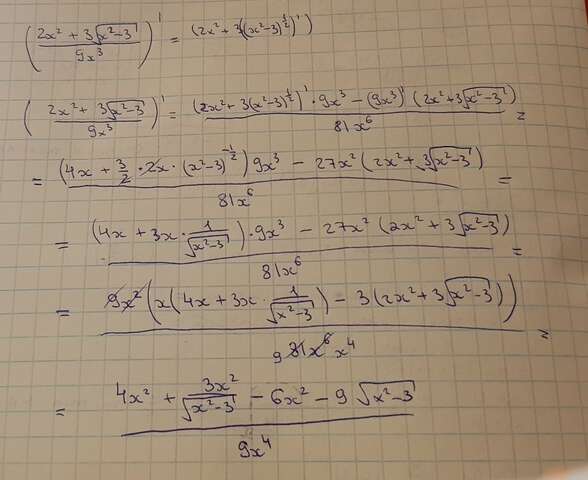 (\frac{2x² + 3\sqrt{x²-3}}{9x³})' = (2x² + 3(x²-3)^{\frac{1}{2}})')
(\frac{2x² + 3\sqrt{x²-3}}{9x³})' = \frac{(2x² + 3(x²-3)^{\frac{1}{2}})' · 9x³ - (9x³)' (2x² + 3\sqrt{x²-3})}{81x⁶} =
= \frac{(4x + \frac{3}{2} · 2x · (x²-3)^{-\frac{1}{2}}) 9x³ - 27x² (2x² + 3\sqrt{x²-3})}{81x⁶} =
= \frac{(4x + 3x · \frac{1}{\sqrt{x²-3}}) · 9x³ - 27x² (2x² + 3\sqrt{x²-3})}{81x⁶} =
= \frac{9x² (x(4x + 3x · \frac{1}{\sqrt{x²-3}}) - 3(2x² + 3\sqrt{x²-3}))}{9 81x⁶ x⁴} =
= \frac{4x² + \frac{3x²}{\sqrt{x²-3}} - 6x² - 9\sqrt{x²-3}}{9x⁴}